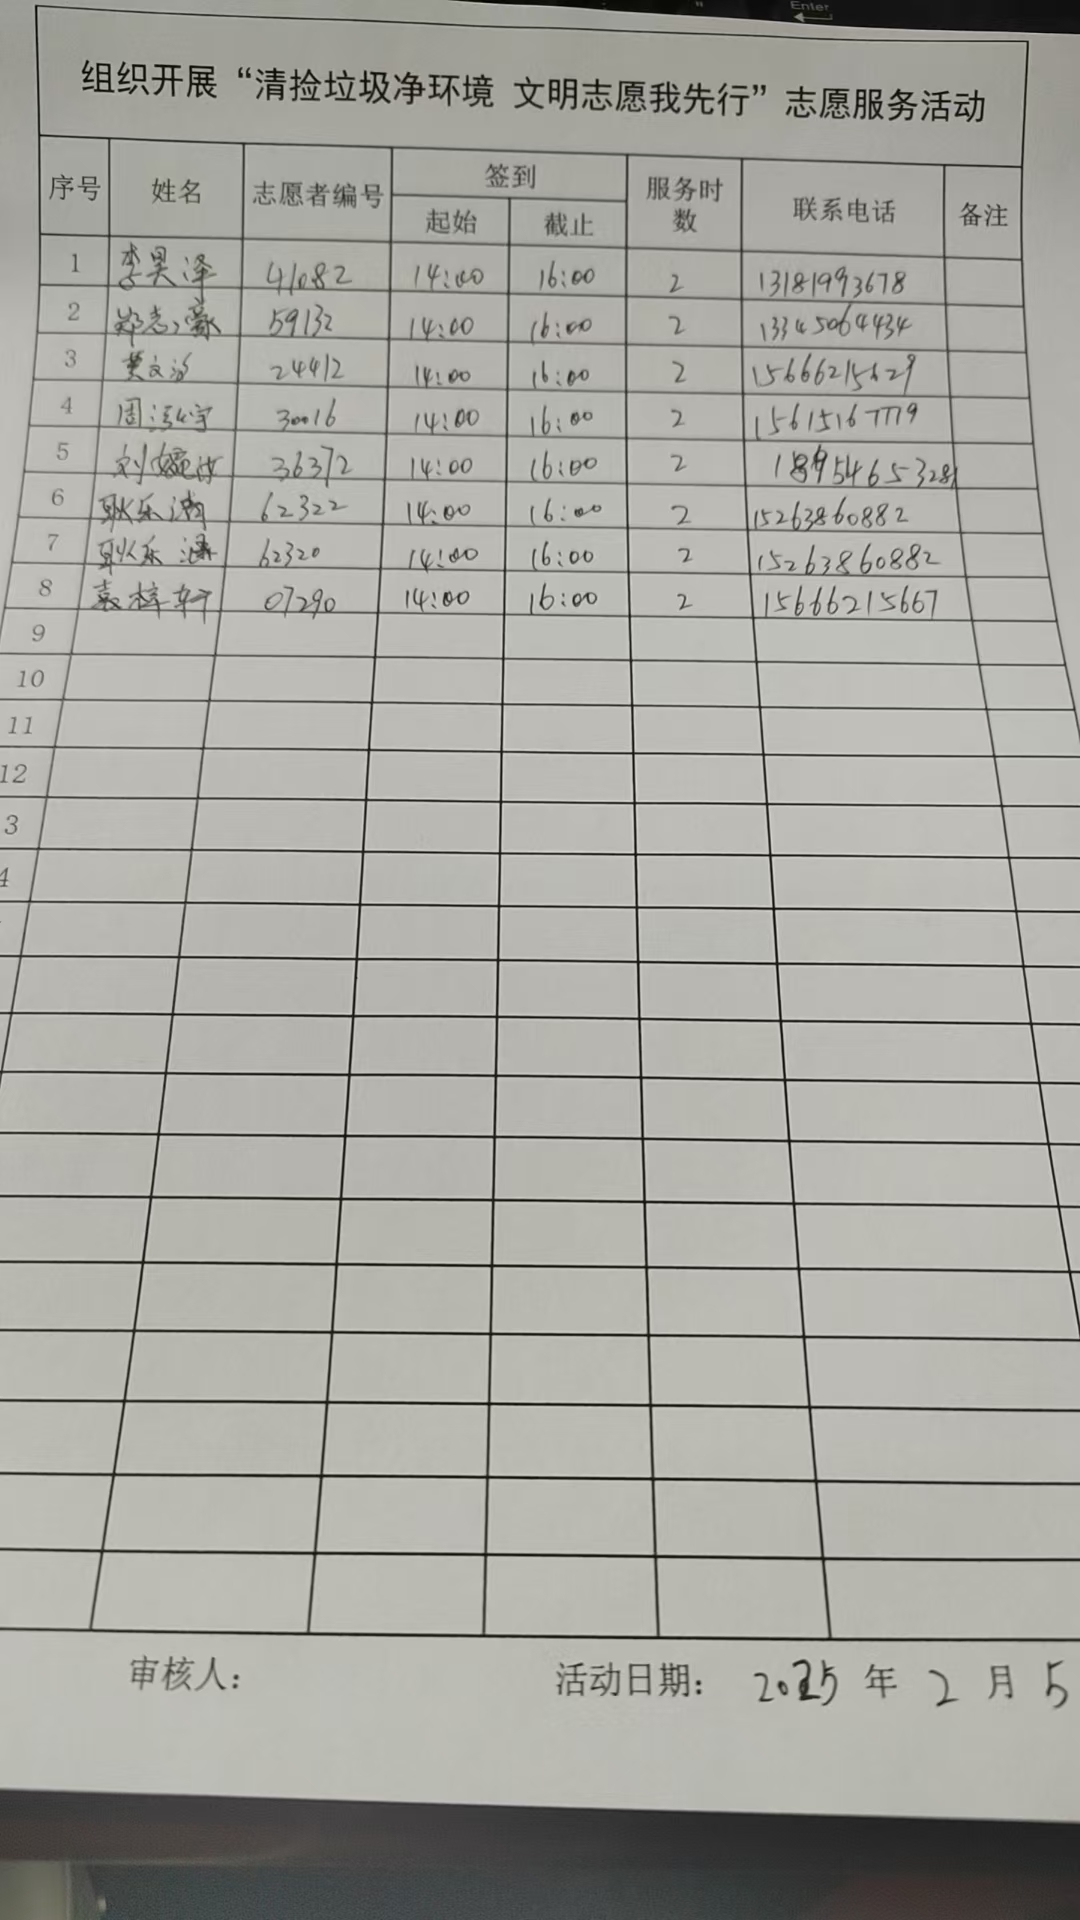 Enter
组织开展“清捡垃圾净环境 文明志愿我先行”志愿服务活动
序号 姓名 志愿者编号 签到 服务时数 联系电话 备注
起始 截止
1 李昊泽 41082 14:00 16:00 2 13181993678
2 郑志豪 59132 14:00 16:00 2 13345064434
3 黄文 24412 14:00 16:00 2 15666215629
4 周泓宇 30016 14:00 16:00 2 15615167779
5 刘婉 36372 14:00 16:00 2 18954653281
6 耿乐 62322 14:00 16:00 2 15263860882
7 耿乐 62320 14:00 16:00 2 15263860882
8 袁梓轩 07290 14:00 16:00 2 15666215667
9
10
11
12
3
4
审核人： 活动日期： 2025 年 2 月 5